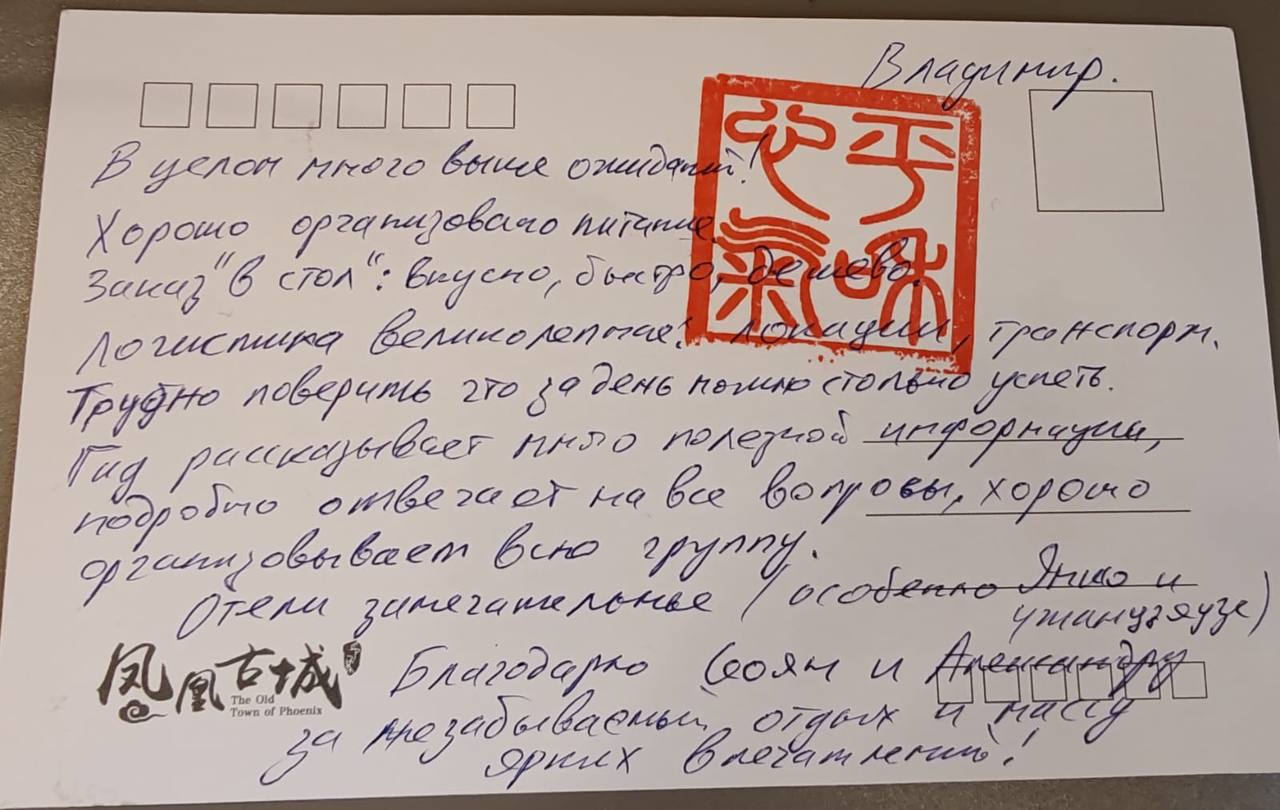 Владимир.
В целом много выше ожиданий!
Хорошо организовано питание.
Заказ "в стол": вкусно, быстро, дешево.
Логистика великолепная: локации, транспорт.
Трудно поверить что за день можно столько успеть.
Гид рассказывает много полезной информации,
подробно отвечает на все вопросы, хорошо
организовывает всю группу.
Отели замечательные (особенно Яншо и
чжанцзяцзе)
Благодарю и Александру
за незабываемый отдых и массу
ярких впечатлений!
心平
氣和
凤凰古城
The Old
Town of Phoenix